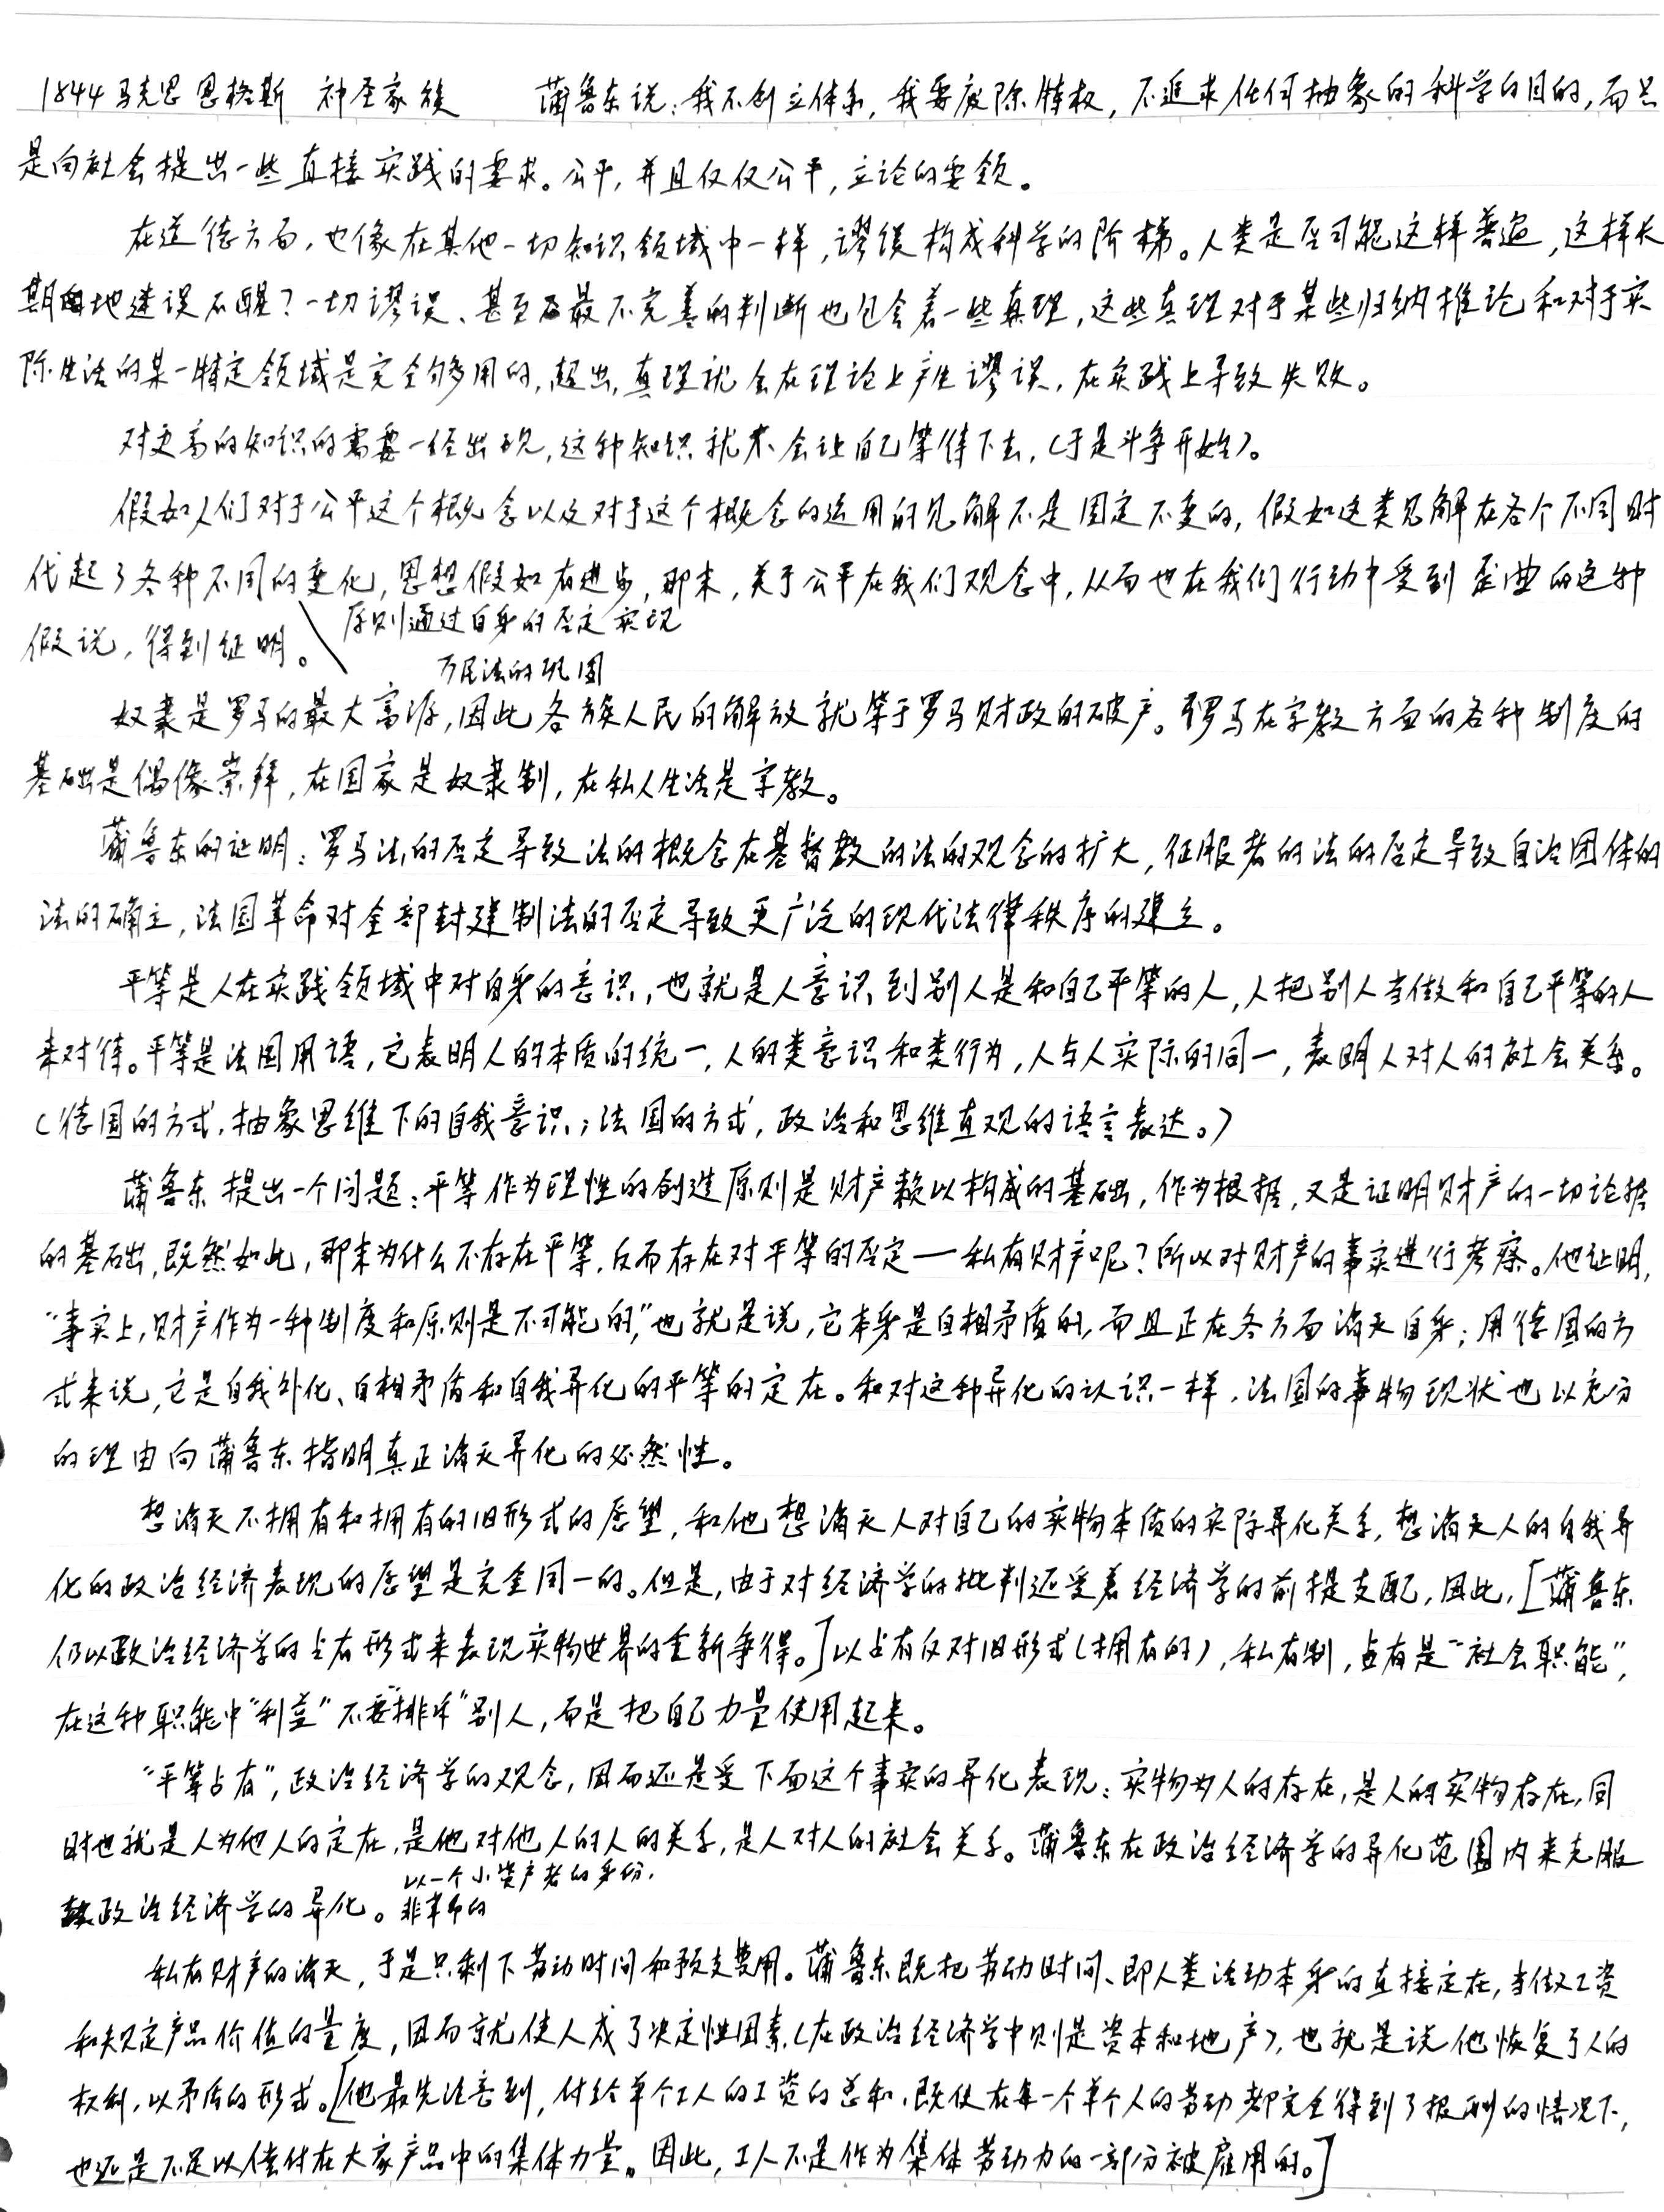 1844 马克思 恩格斯 神圣家族 蒲鲁东说:我不创立体系,我要废除特权,不追求任何抽象的科学的目的,而只
是向社会提出一些直接实践的要求。公平,并且仅仅公平,立论的要领。
在道德方面,也像在其他一切知识领域中一样,谬误构成科学的阶梯。人类是否可能这样普遍,这样长
期地迷误不醒?一切谬误、甚至最不完善的判断也包含着一些真理,这些真理对于某些归纳推论和对于实
际生活的某一特定领域是完全够用的,超出,真理就会在理论上产生谬误,在实践上导致失败。
对更高的知识的需要一经出现,这种知识就不会让自己等待下去,(于是斗争开始)。
假如人们对于公平这个概念以及对于这个概念的运用的见解不是固定不变的,假如这类见解在各个不同时
代起了各种不同的变化,思想假如有进步,那末,关于公平在我们观念中,从而也在我们行动中受到歪曲的这种
假说,得到证明。 原则通过自身的否定实现
万民法的巩固
奴隶是罗马的最大富源,因此各族人民的解放就等于罗马财政的破产。罗马在宗教方面的各种制度的
基础是偶像崇拜,在国家是奴隶制,在私人生活是宗教。
蒲鲁东的证明:罗马法的否定导致法的概念在基督教的法的观念的扩大,征服者的法的否定导致自治团体的
法的确立,法国革命对全部封建制法的否定导致更广泛的现代法律秩序的建立。
平等是人在实践领域中对自身的意识,也就是人意识到别人是和自己平等的人,人把别人当做和自己平等的人
来对待。平等是法国用语,它表明人的本质的统一,人的类意识和类行为,人与人实际的同一,表明人对人的社会关系。
(德国的方式,抽象思维下的自我意识;法国的方式,政治和思维直观的语言表达。)
蒲鲁东提出一个问题:平等作为理性的创造原则是财产赖以构成的基础,作为根据,又是证明财产的一切论据
的基础,既然如此,那末为什么不存在平等,反而存在对平等的否定—私有财产呢?所以对财产的事实进行考察。他证明,
“事实上,财产作为一种制度和原则是不可能的,”也就是说,它本身是自相矛盾的,而且正在各方面消灭自身;用德国的方
式来说,它是自我外化、自相矛盾和自我异化的平等的定在。和对这种异化的认识一样,法国的事物现状也以充分
的理由向蒲鲁东指明真正消灭异化的必然性。
想消灭不拥有和拥有的旧形式的愿望,和他想消灭人对自己的实物本质的实际异化关系,想消灭人的自我异
化的政治经济表现的愿望是完全同一的。但是,由于对经济学的批判还受着经济学的前提支配,因此,[蒲鲁东
仍以政治经济学的占有形式来表现实物世界的重新争得。]以占有反对旧形式(拥有的),私有制,占有是“社会职能”,
在这种职能中“利益”不要“排斥”别人,而是把自己力量使用起来。
“平等占有”,政治经济学的观念,因而还是受下面这个事实的异化表现:实物为人的存在,是人的实物存在,同
时也就是人为他人的定在,是他对他人的人的关系,是人对人的社会关系。蒲鲁东在政治经济学的异化范围内来克服
以一个小资产者的身份,
政治经济学的异化。非革命的
私有财产的消灭,于是只剩下劳动时间和预支费用。蒲鲁东既把劳动时间、即人类活动本身的直接定在,当做工资
和规定产品价值的量度,因而就使人成了决定性因素,(在政治经济学中则是资本和地产),也就是说他恢复了人的
权利,以矛盾的形式。[他最先注意到,付给单个工人的工资的总和,既使在每一个单个人的劳动都完全得到了报酬的情况下,
也还是不足以偿付在大家产品中的集体力量。因此,工人不是作为集体劳动力的一部分被雇用的。]